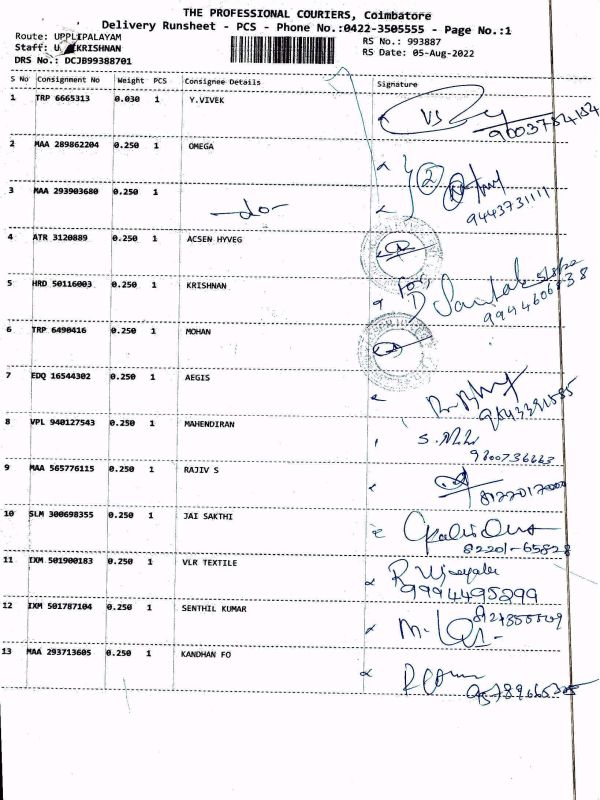 THE PROFESSIONAL COURIERS, Coimbatore
Delivery Runsheet - PCS - Phone No.:0422-3505555 - Page No.:1
Route: UPPLIPALAYAM
RS No.: 993887
Staff: KRISHNAN
RS Date: 05-Aug-2022
DRS No.: DCJB99388701
S No Consignment No Weight PCS Consignee Details Signature
1 TRP 6665313 0.030 1 Y.VIVEK
2 MAA 289862204 0.250 1 OMEGA
2
3 MAA 293903680 0.250 1 -do-
9443731111
4 ATR 3120889 0.250 1 ACSEN HYVEG
5 HRD 50116003 0.250 1 KRISHNAN
for
6 TRP 6490416 0.250 1 MOHAN
7 EDQ 16544302 0.250 1 AEGIS
8 VPL 940127543 0.250 1 MAHENDIRAN
9 MAA 565776115 0.250 1 RAJIV S
10 SLM 300698355 0.250 1 JAI SAKTHI
82201-65828
11 IXM 501900183 0.250 1 VLR TEXTILE
9994495299
12 IXM 501787104 0.250 1 SENTHIL KUMAR
13 MAA 293713605 0.250 1 KANDHAN FO